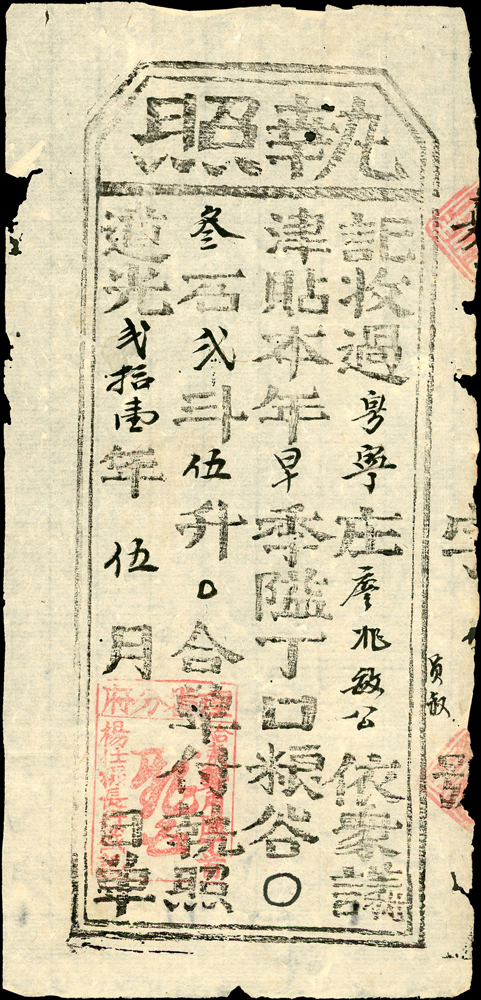 執照
記收過
庄廖兆敏公依衆議
津貼本年早季隘丁口粮谷〇
叁石弍斗伍升〇合單付執照
道光弍拾壹年伍月 日單
字 員敏 号
分府